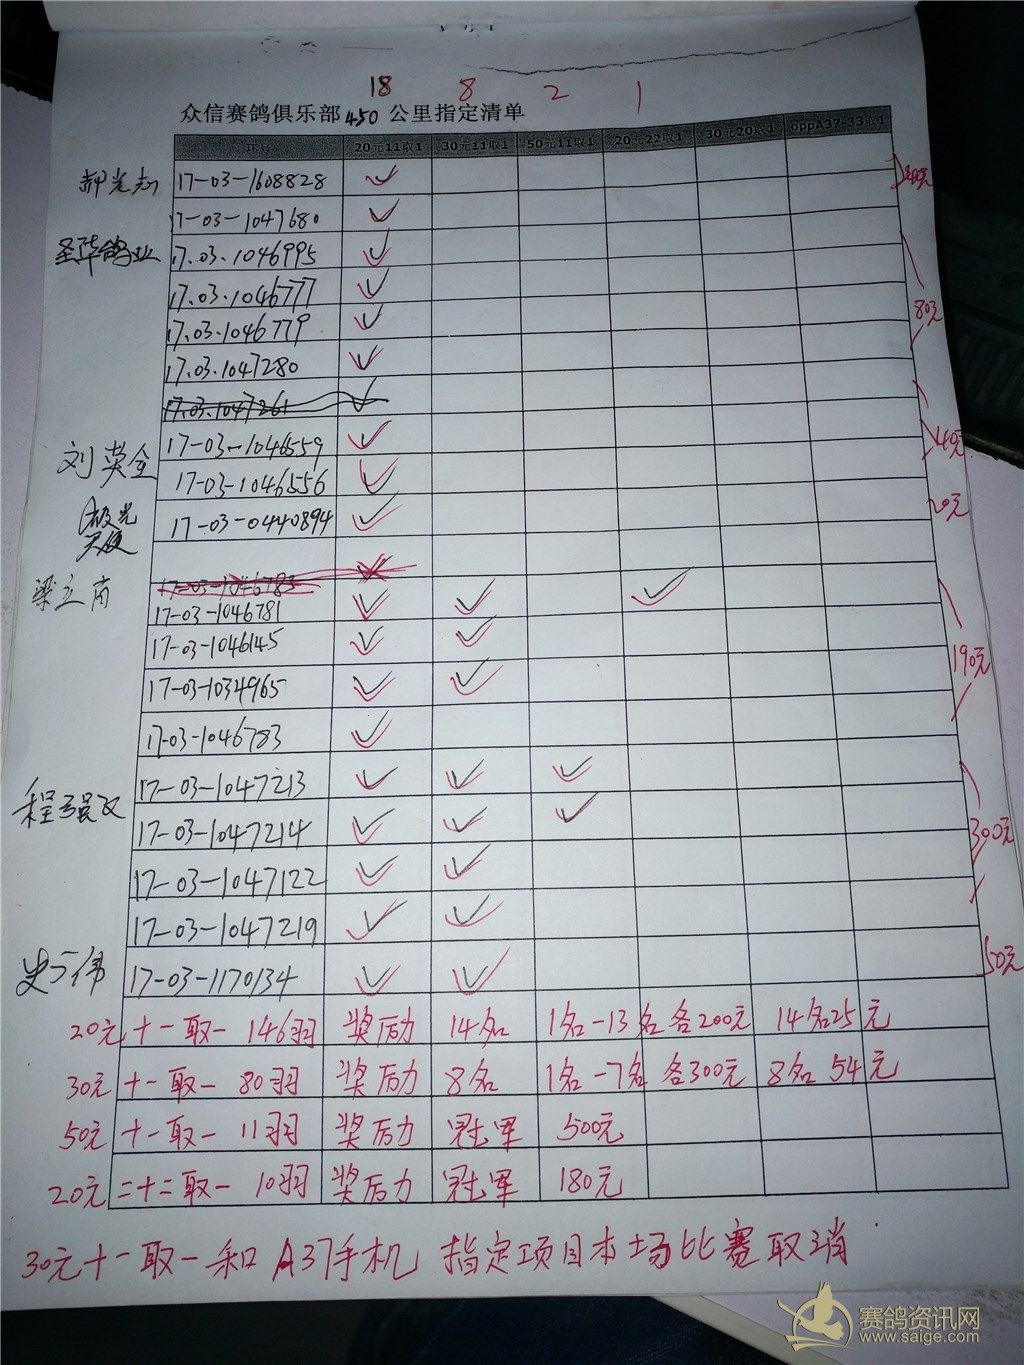 18 8 2 1
众信赛鸽俱乐部450公里指定清单
环号 20元11取1 30元11取1 50元11取1 20元22取1 30元20取1 oppA37-33取1
郝光志 17-03-1608828 ✓
17-03-1047680 ✓
圣华鸽业 17.03.1046995 ✓
17.03.1046777 ✓ 80元
17.03.1046779 ✓
17.03.1047280 ✓
17.03.1047261 ✓
刘英全 17-03-1046559 ✓ 40元
17-03-1046556 ✓
17-03-0440894 ✓ 20元
17-03-1046783
梁立南 17-03-1046781 ✓ ✓ ✓
17-03-1046145 ✓ ✓ 190元
17-03-1034965 ✓ ✓
17-03-1046783 ✓
程强义 17-03-1047213 ✓ ✓ ✓
17-03-1047214 ✓ ✓ ✓ 300元
17-03-1047122 ✓ ✓
17-03-1047219 ✓ ✓
17-03-1170134 ✓ ✓ 50元
20元十一取一 146羽 奖励 14名 1名-13名各200元 14名25元
30元十一取一 80羽 奖励 8名 1名-7名各300元 8名54元
50元十一取一 11羽 奖励 冠军 500元
20元二十二取一 10羽 奖励 冠军 180元
30元十一取一和A37手机 指定项目本场比赛取消
赛鸽资讯网
www.saige.com